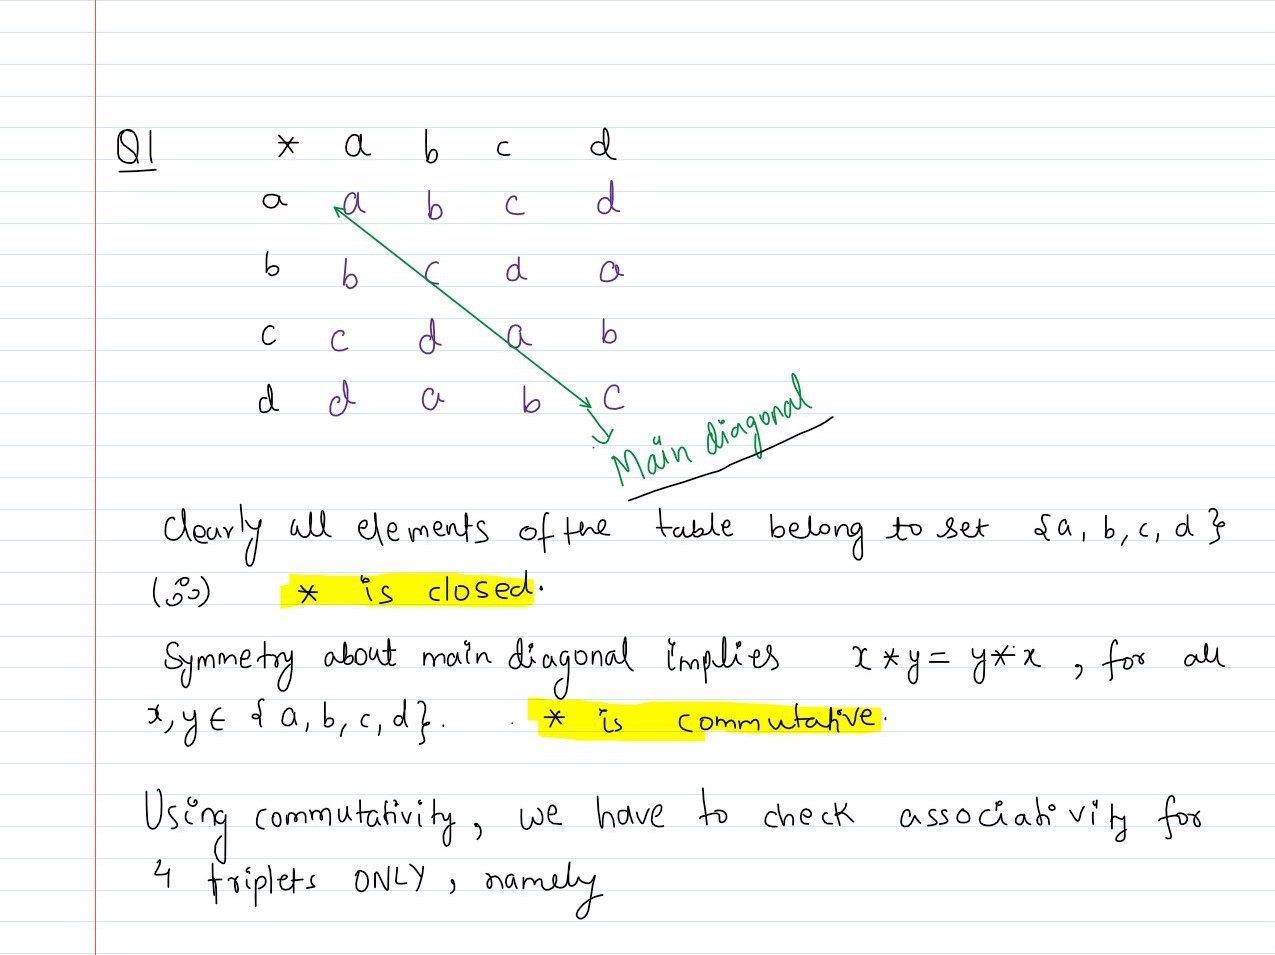 Q1 * a b c d
a a b c d
b b c d a
c c d a b
d d a b c
Main diagonal
Clearly all elements of the table belong to set {a, b, c, d}
* is closed.
Symmetry about main diagonal implies x * y = y * x , for all
x, y ∈ {a, b, c, d}. * is commutative.
Using commutativity, we have to check associativity for
4 triplets ONLY, namely